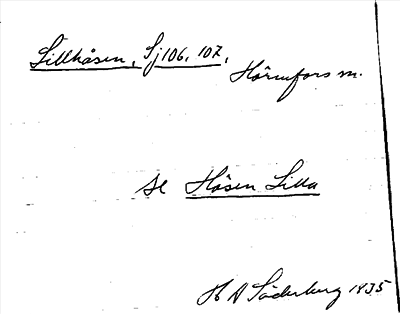 Lillhåsen, Sj 106, 107,
Hörnefors m.
se Håsen Lilla
H A Söderberg 1935